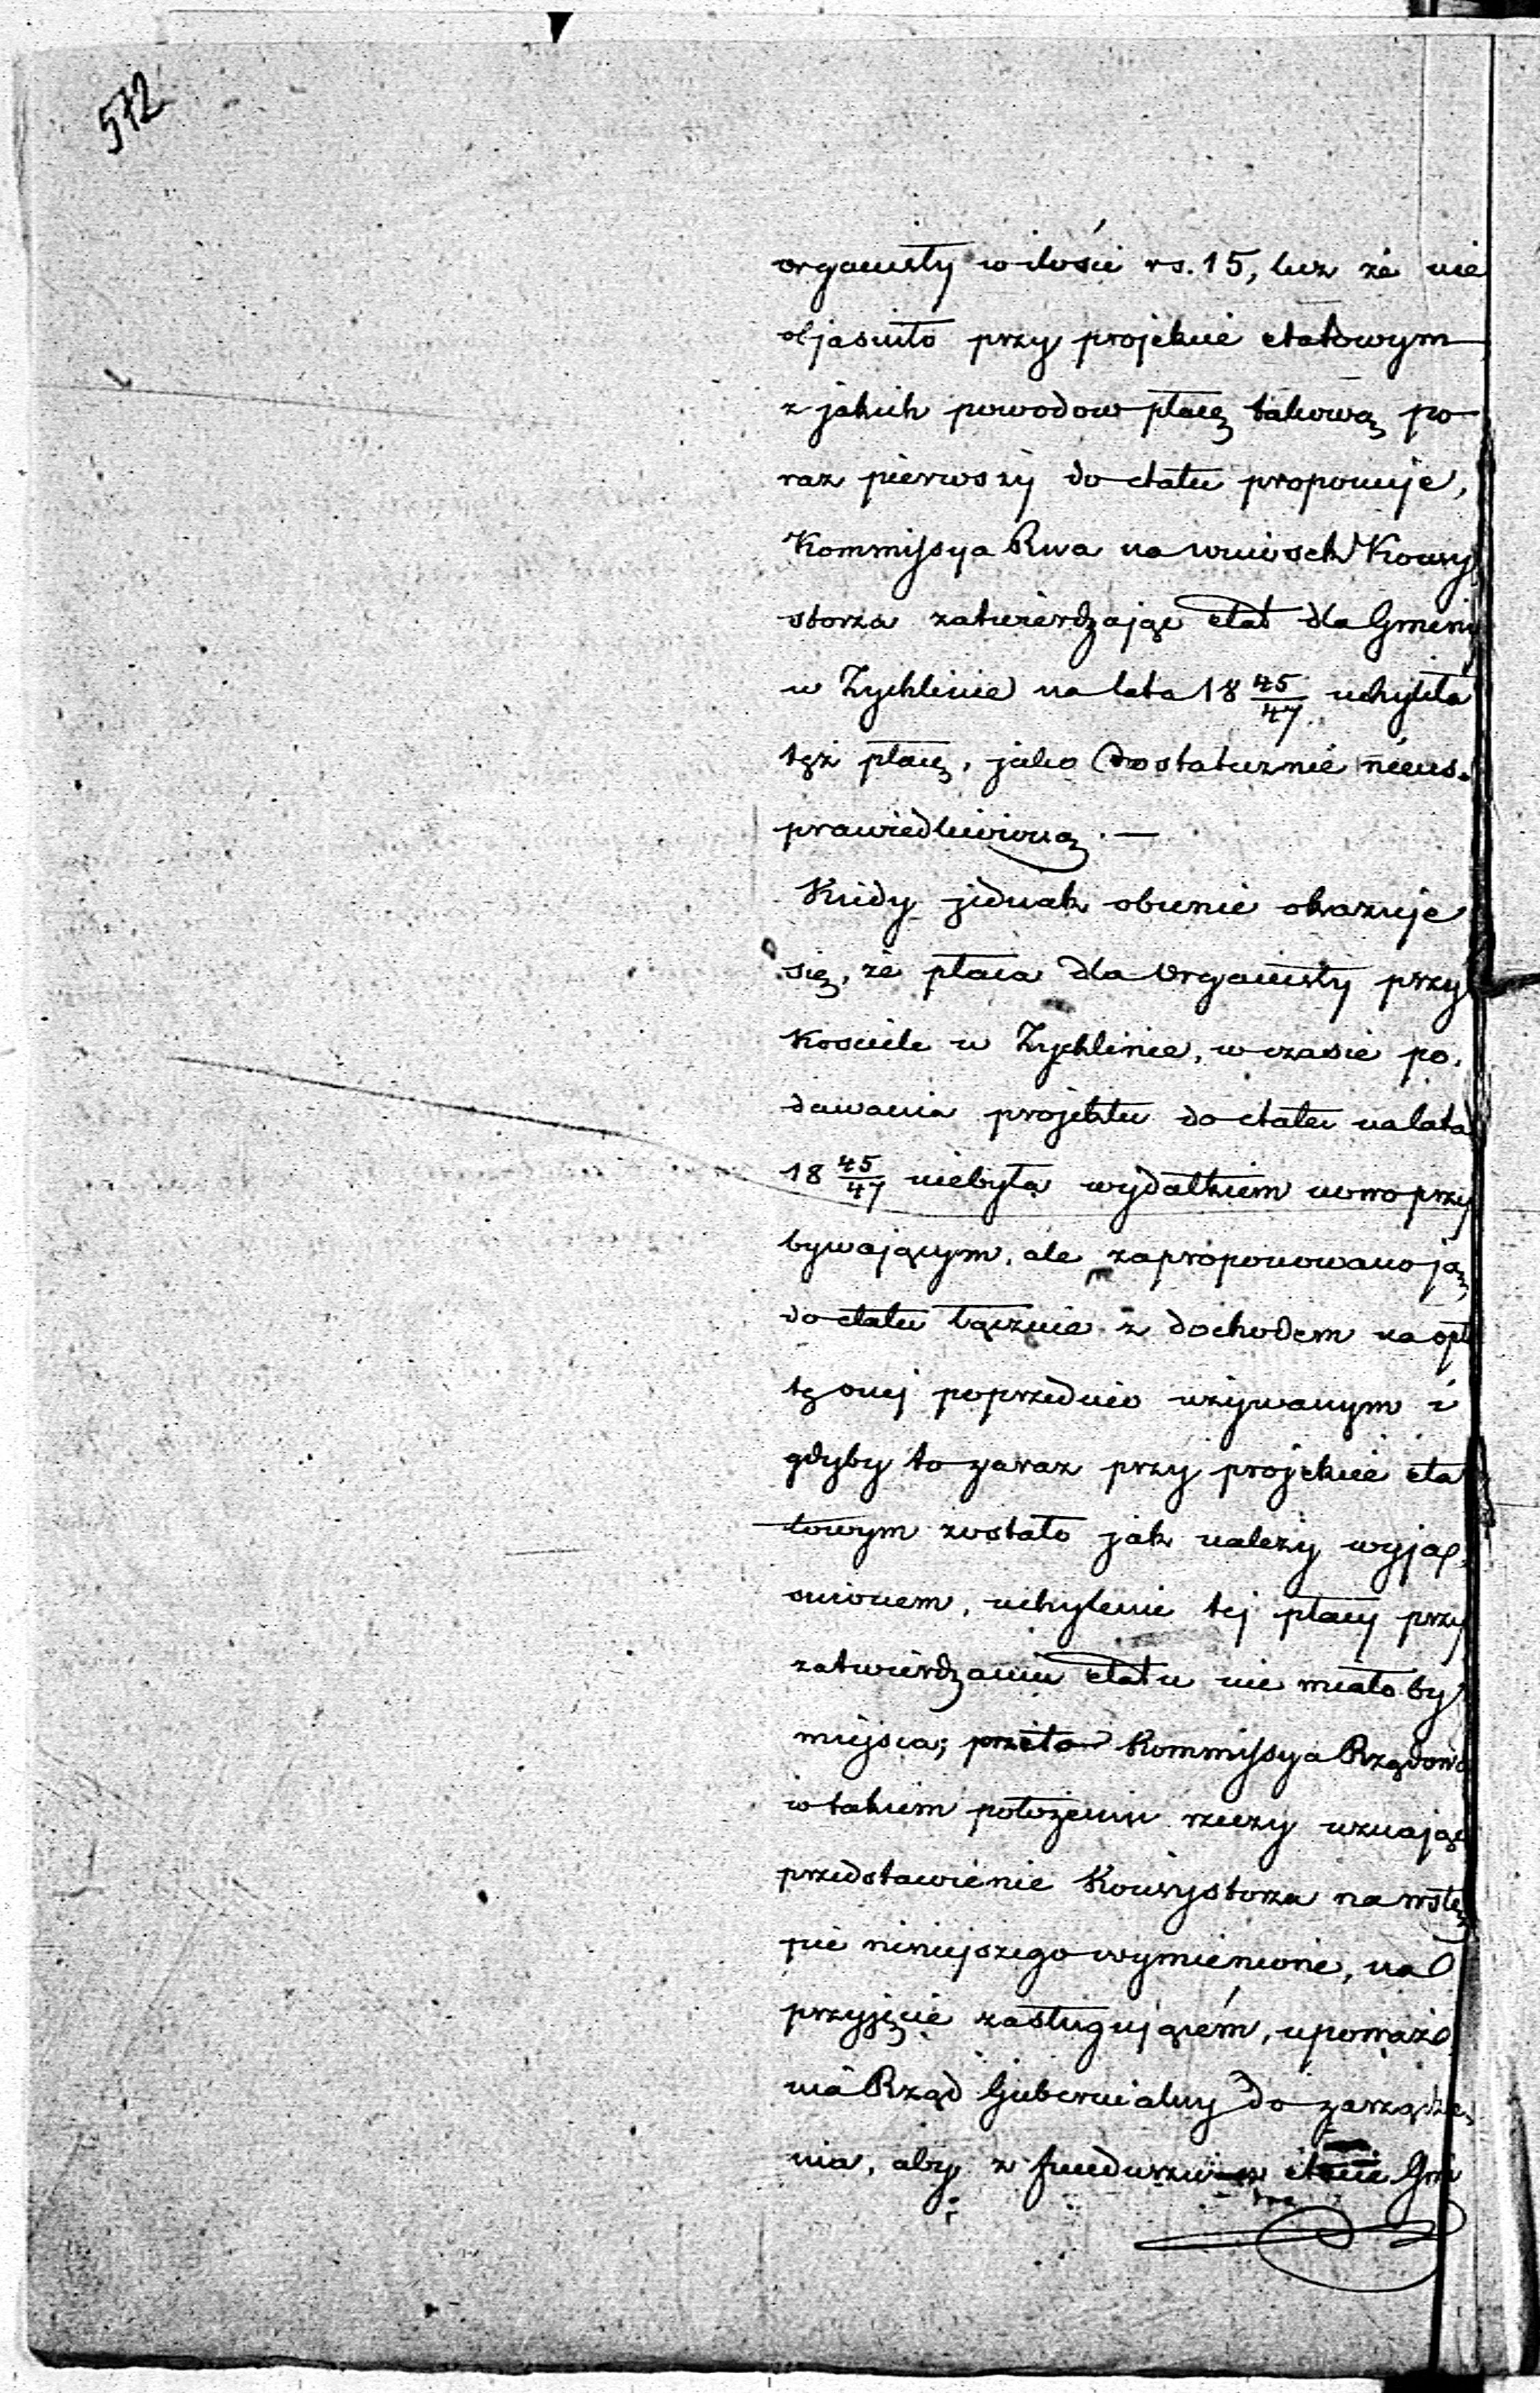 572
organisty w ilości rs. 15, lecz że nie
objasniło przy projekcie etatowym
z jakich powodow płacę takową po
raz pierwszy do etatu proponuje,
Kommissya Rwa na wniosek Konsy
storza zatwierdzając etat dla Gminy
w Zychlinie na lata 18 45/47 uchyliła
tęż płacę, jako dostatecznie nieus.
prawiedliwioną. —
Kiedy jednak obecnie okazuje
się, że płaca dla Organisty przy
Kosciele w Zychlinie, w czasie po.
dawania projektu do etatu na lata
18 45/47 niebyła wydatkiem nowo przy
bywającym, ale zaproponowano ją
do etatu łącznie z dochodem na opł
tę onej poprzednio używanym i
gdyby to zaraz przy projekcie eta
towym zostało jak należy wyjaś
snionem, uchylenie tej płacy przy
zatwierdzaniu etatu nie miało by
miejsca; przeto Kommissya Rządowa
w takiem położeniu rzeczy uznając
przedstawienie Konsystorza na wstę
pie niniejszego wymienione, na
przyjęcie zasługującém, upoważ
nia Rząd Gubernialny do zarządze
nia, aby z funduszu etacie Gmi